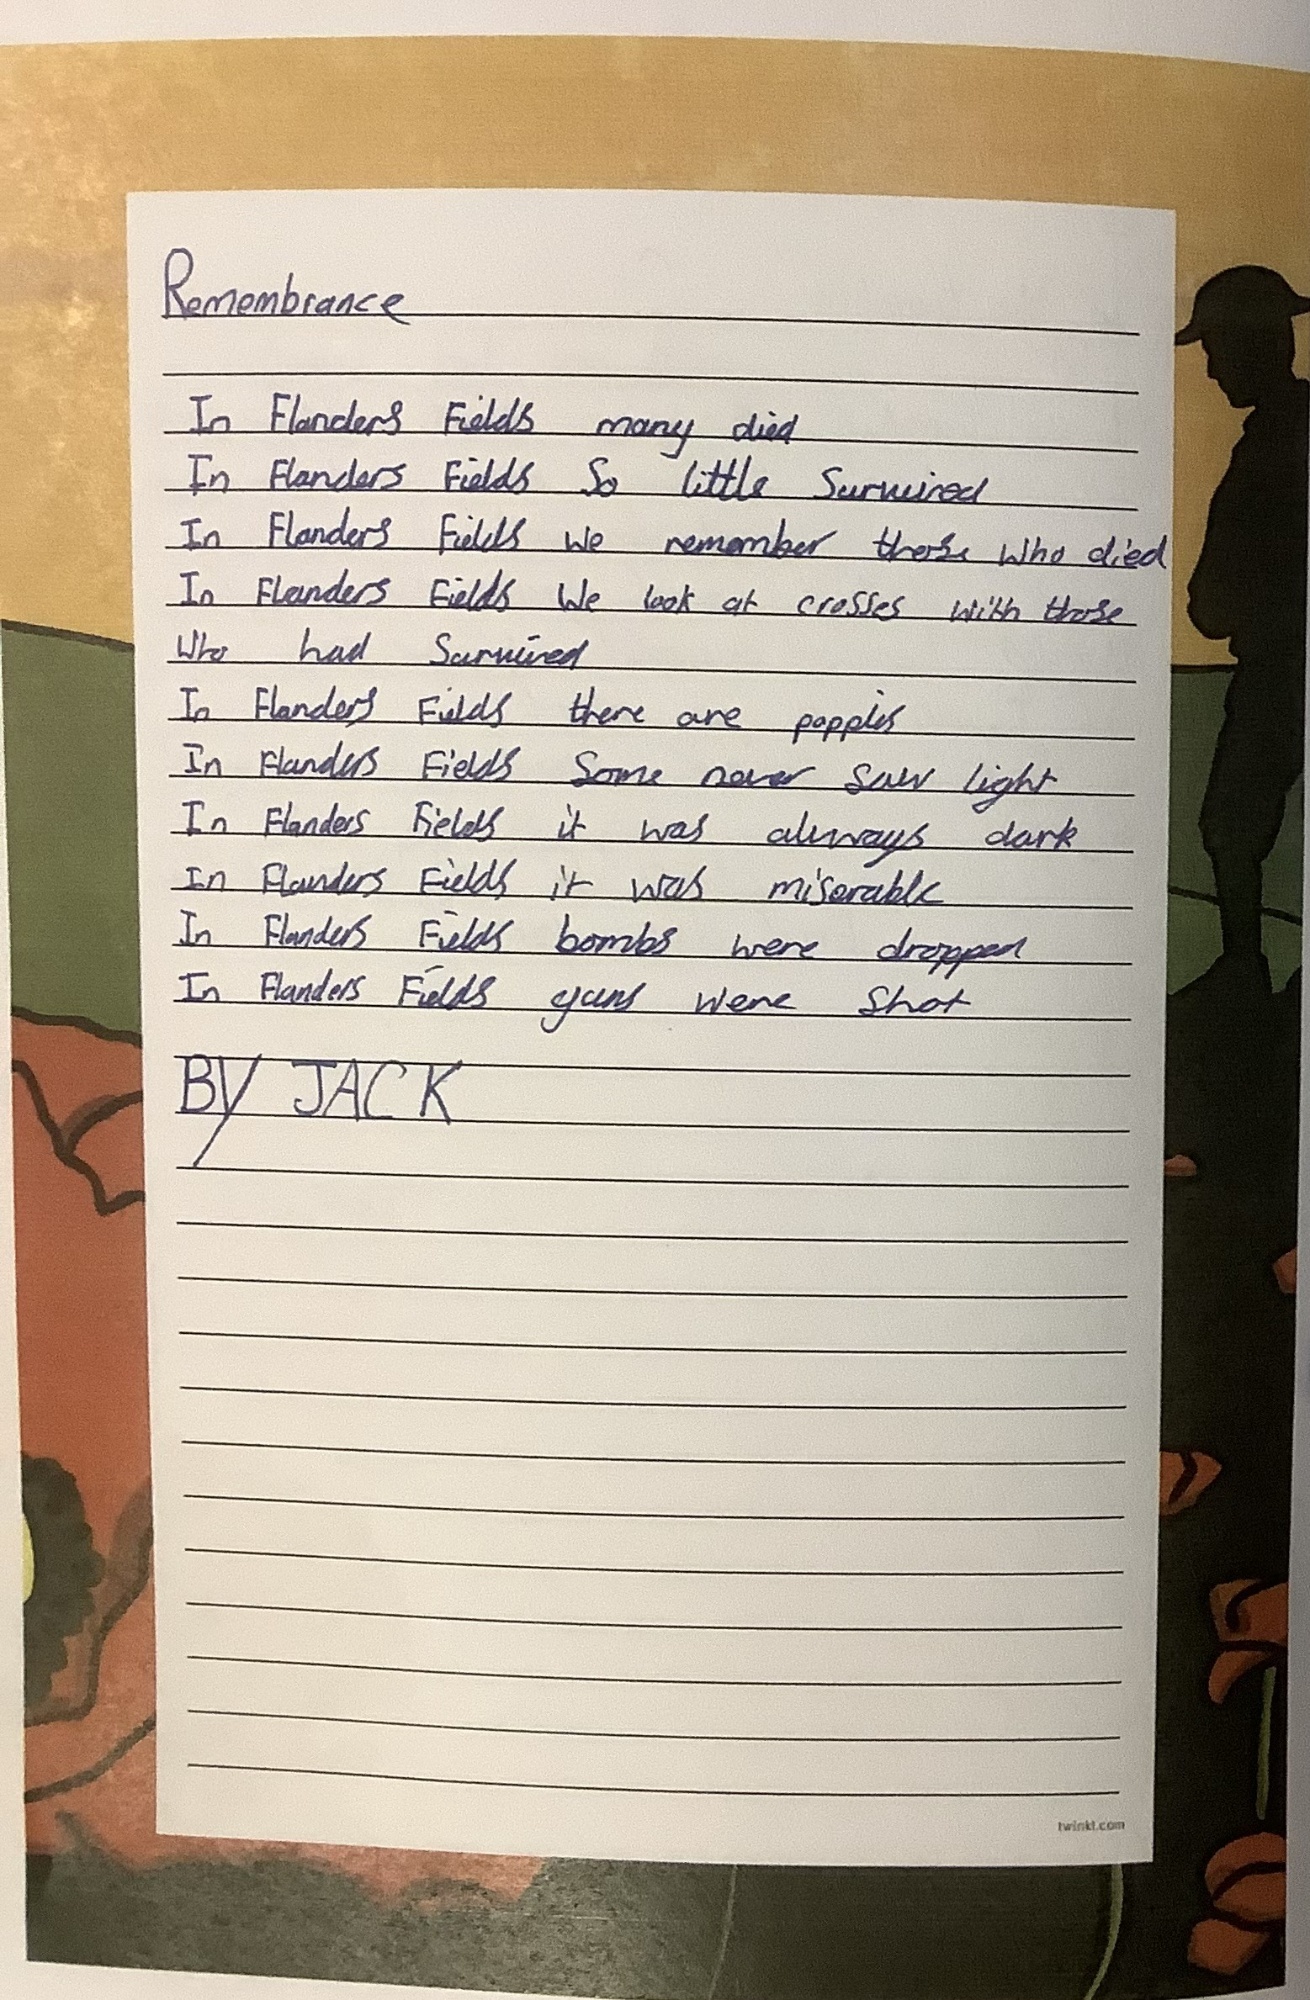 Remembrance
In Flanders Fields many died
In Flanders Fields So little Survived
In Flanders Fields we remember those who died
In Flanders Fields We look at crosses with those
who had Survived
In Flanders Fields there are poppies
In Flanders Fields Some never saw light
In Flanders Fields it was always dark
In Flanders Fields it was miserable
In Flanders Fields bombs were dropped
In Flanders Fields guns were shot
BY JACK
twinkl.com